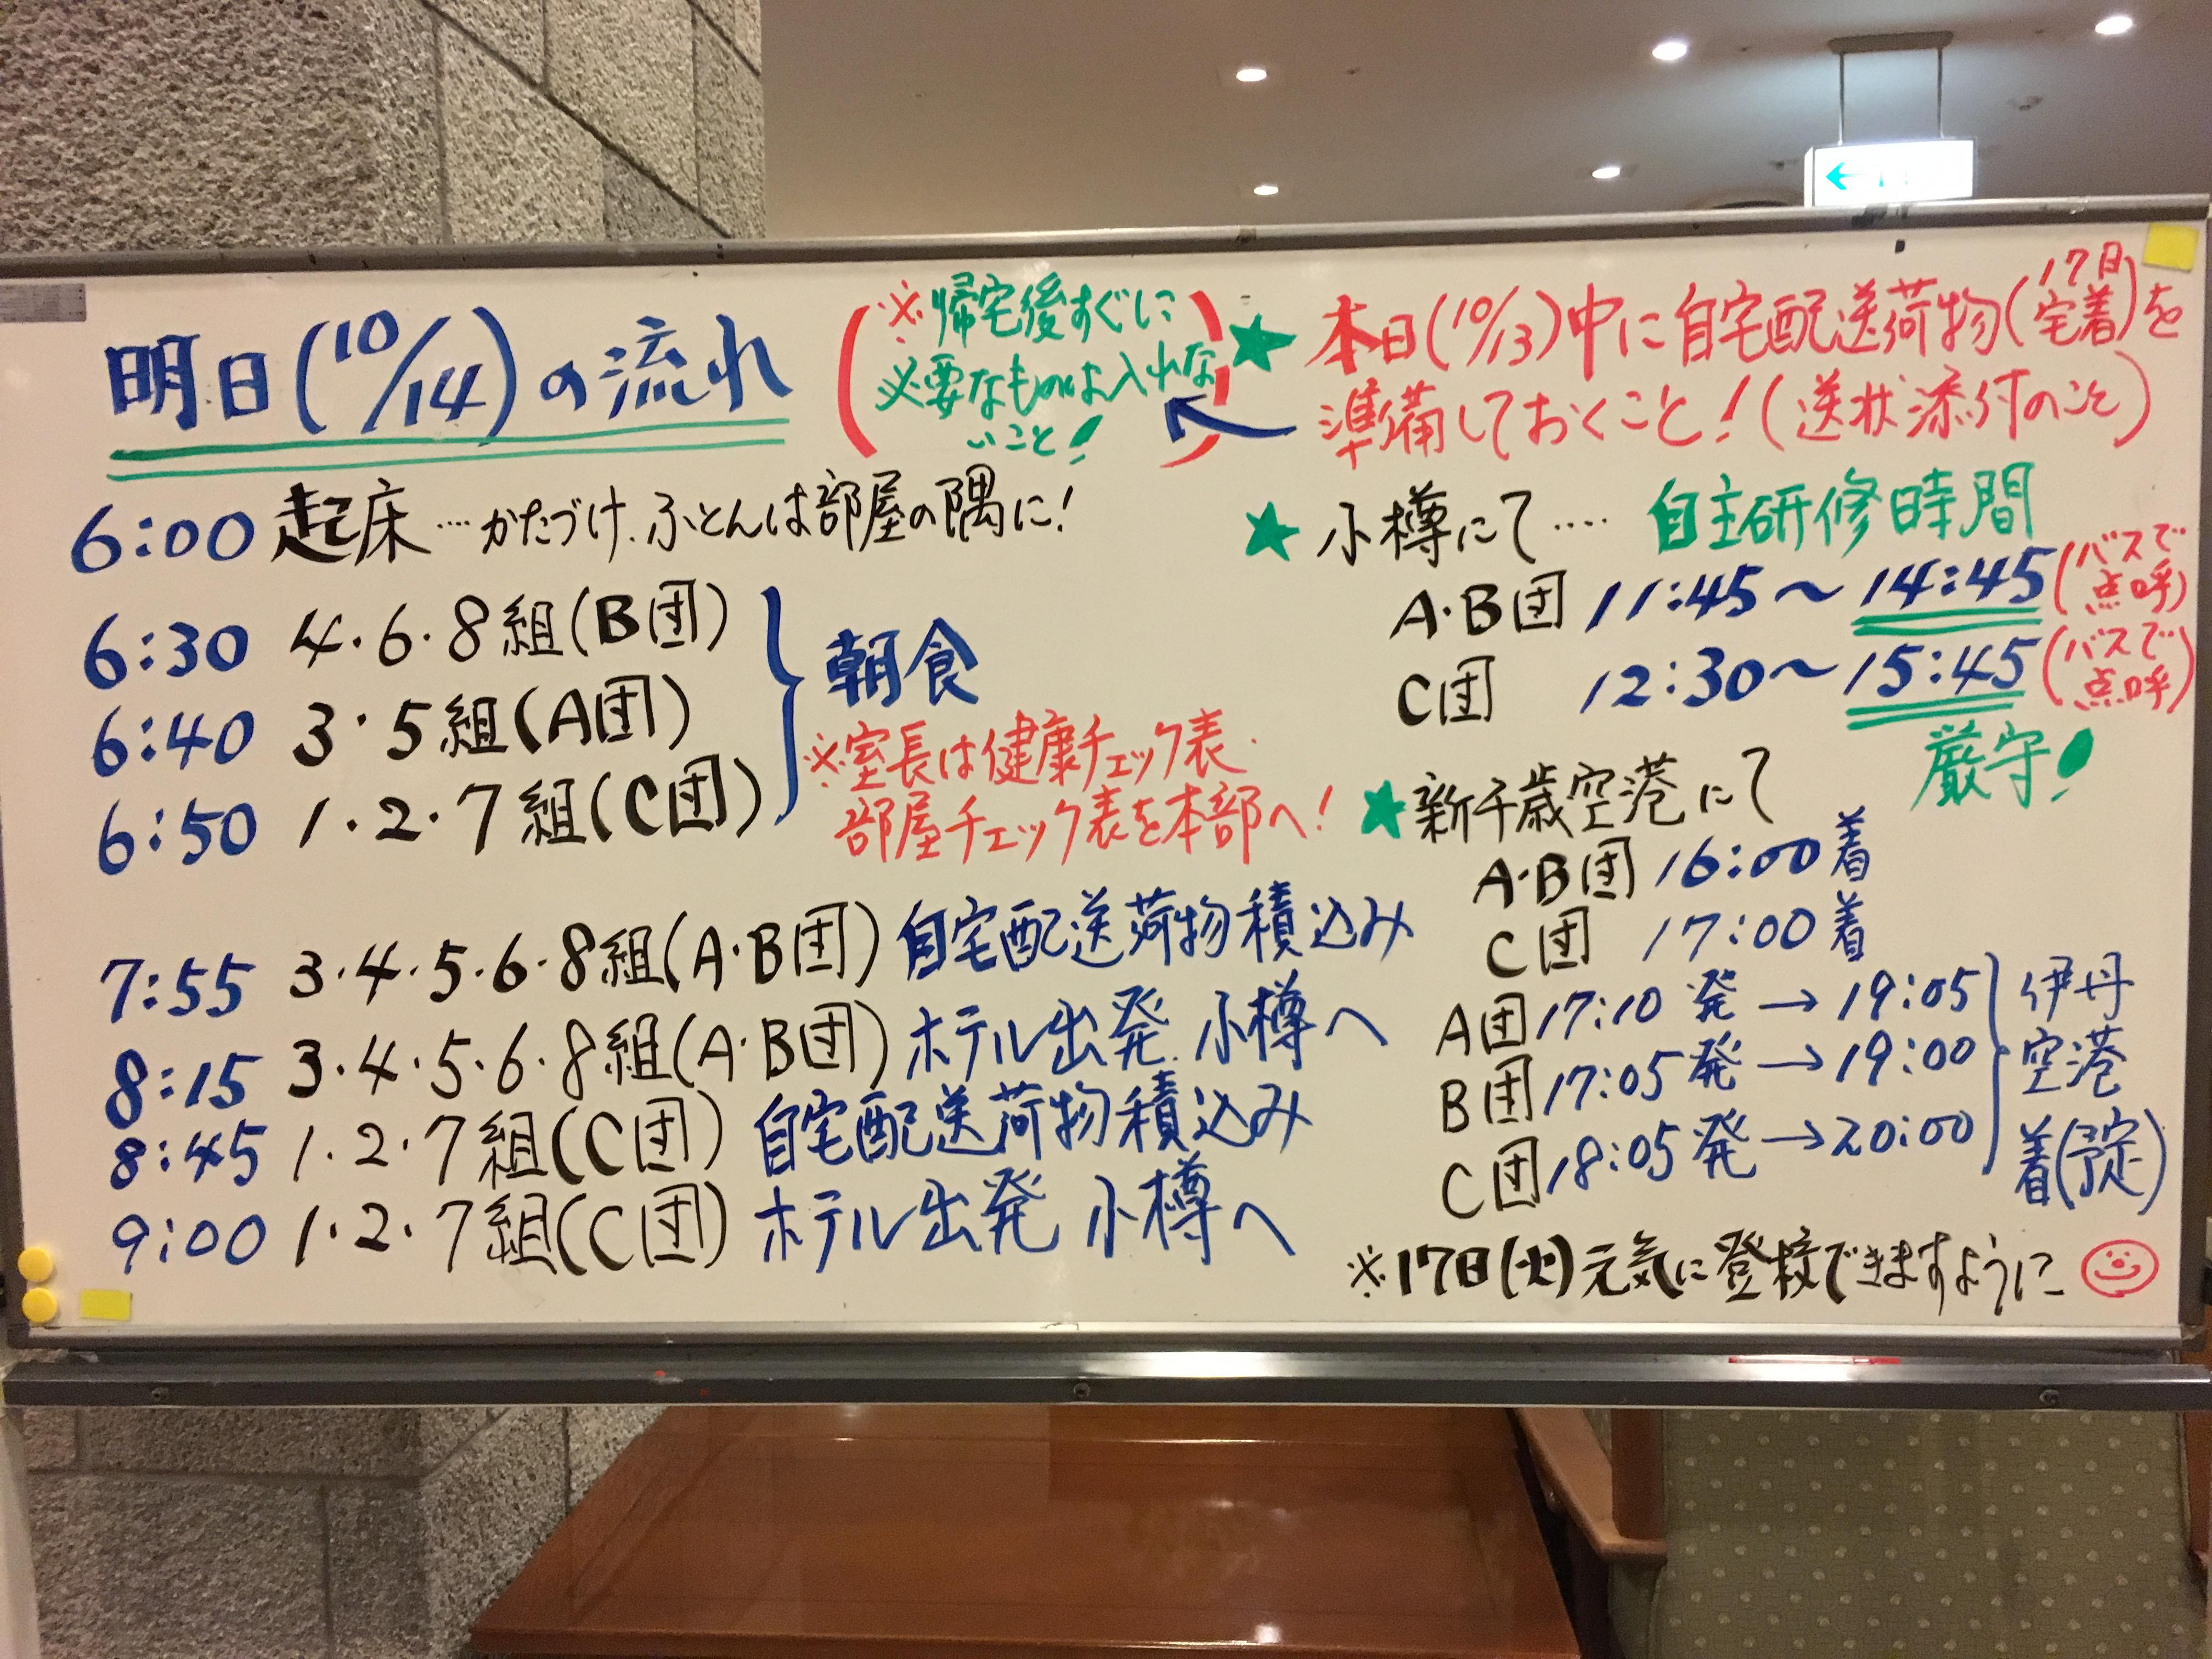 明日(10/14)の流れ
(※帰宅後すぐに
必要なものは入れな
いこと!)
6:00 起床…かたづけ、ふとんは部屋の隅に!
6:30 4・6・8組(B団)
6:40 3・5組(A団)
6:50 1・2・7組(C団)
朝食
※室長は健康チェック表、
部屋チェック表を本部へ!
7:55 3・4・5・6・8組(A・B団) 自宅配送荷物積込み
8:15 3・4・5・6・8組(A・B団) ホテル出発 小樽へ
8:45 1・2・7組(C団) 自宅配送荷物積込み
9:00 1・2・7組(C団) ホテル出発 小樽へ
★本日(10/13)中に自宅配送荷物(17日宅着)を
準備しておくこと!(送状添付のこと)
★小樽にて…. 自主研修時間
A・B団 11:45〜14:45(バスで点呼)
C団 12:30〜15:45(バスで点呼)
厳守!
★新千歳空港にて
A・B団 16:00着
C団 17:00着
A団 17:10発→19:05
B団 17:05発→19:00
C団 18:05発→20:00
伊丹
空港
着(予定)
※17日(火)元気に登校できますように